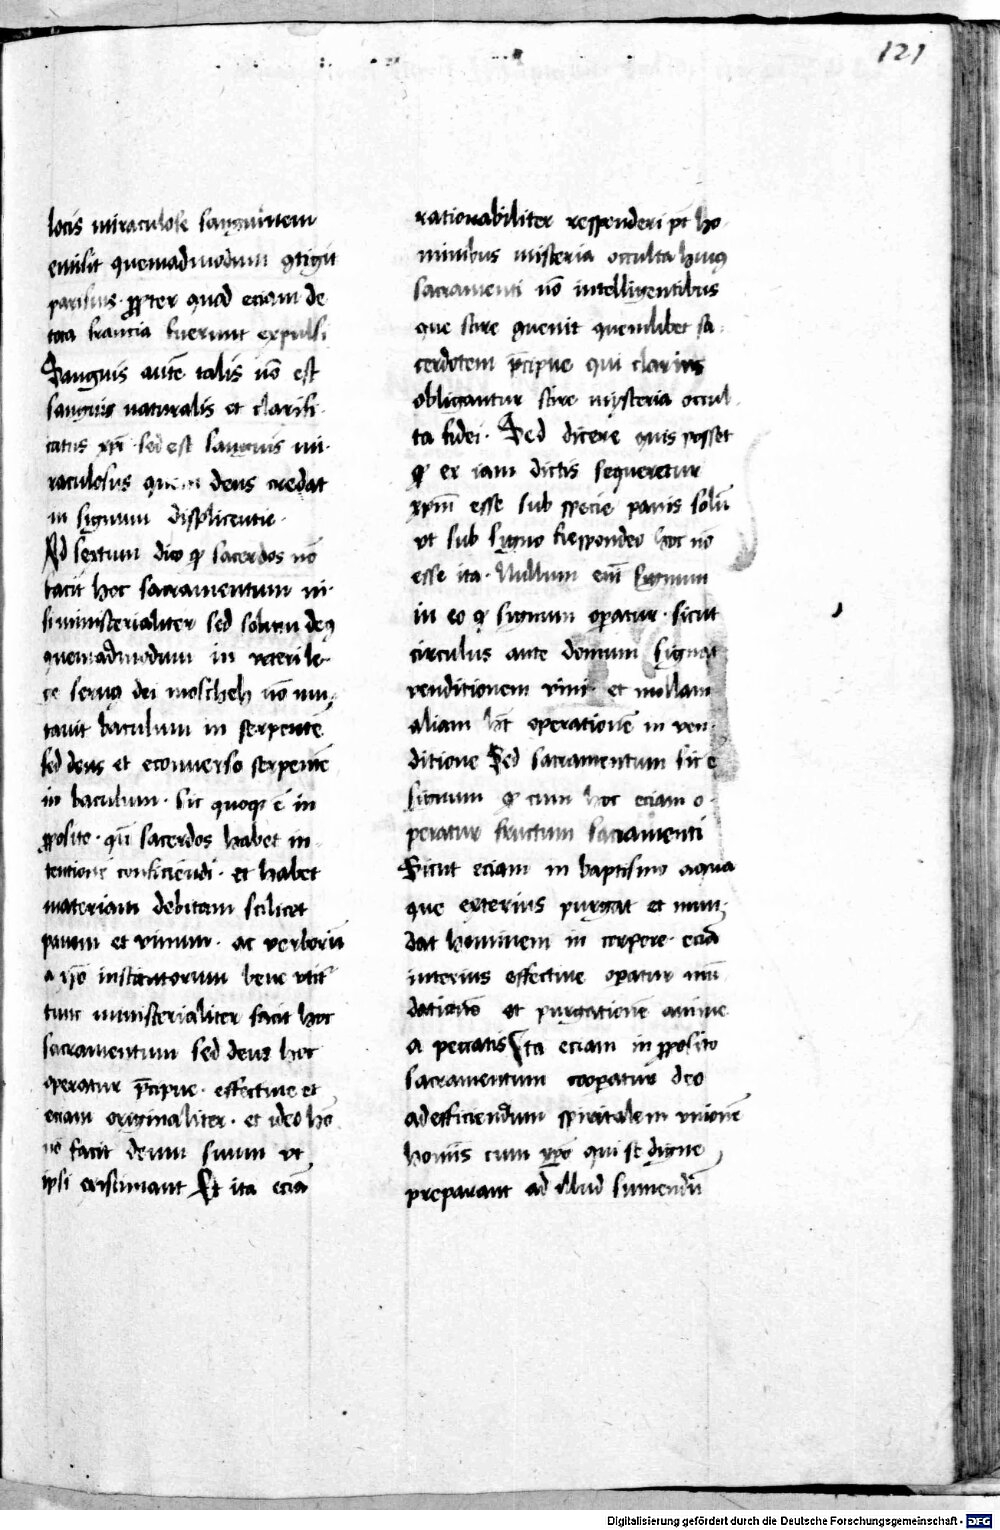 121
locis miraculose sanguinem
emisit quemadmodum ꝯtigit
parisius. ꝓpter quod eciam de
tota francia fuerunt expulsi
Sanguis autē talis nō est
sanguis naturalis et clarifi-
catus xp̄i. sed est sanguis mi-
raculosus quem deus credat
in signum displicentie.
Ad sextum dico ꝙ sacerdos nō
facit hoc sacramentum ni-
si ministerialiter sed solum deꝰ
quemadmodum in veteri le-
ge seruꝰ dei moscheh nō mu-
tauit baculum in serpentē
sed deus et econuerso serpentē
in baculum. sic quoqꝫ ē in
ꝓposito. qn̄ sacerdos habet in-
tentionē conficiendi. et habet
materiam debitam scilicet
panem et vinum. ac verborū
a xp̄o institutorum bene vtit᷑
tunc ministerialiter facit hoc
sacramentum sed deus hoc
operatur p̄cipue. effectiue et
eciam originaliter. et ideo hō
nō facit deum suum vt
ipsi existimant Et ita eciā
rationabiliter responderi pōt ho-
minibus misteria occulta huiꝰ
sacramenti nō intelligentibus
que scire ꝯuenit quemlibet sa-
cerdotem p̄cipue qui clarius
obligantur scire mysteria occul-
ta fidei. Sed dicere quis posset
ꝙ ex iam dictis sequeretur
xp̄m esse sub specie panis solū
vt sub signo Respondeo hoc nō
esse ita. Nullum em̄ signum
in eo ꝙ signum opatur. sicut
circulus ante domum signat
venditionem vini et nullam
aliam hꝫ operationē in ven-
ditione Sed sacramentum sic ē
signum ꝙ cum hoc eciam o-
peratur fructum sacramenti
Sicut eciam in baptismo aqua
que exterius purgat et mun-
dat hominem in corpore. eciā
interius effectiue opatur mū-
dationē et purgationē anime
a peccatis Ita eciam in ꝓposito
sacramentum coopatur deo
ad efficiendum spiritalem vnionē
hominis cum xp̄o qui se digne
preparant ad illud sumendū
Digitalisierung gefördert durch die Deutsche Forschungsgemeinschaft - DFG